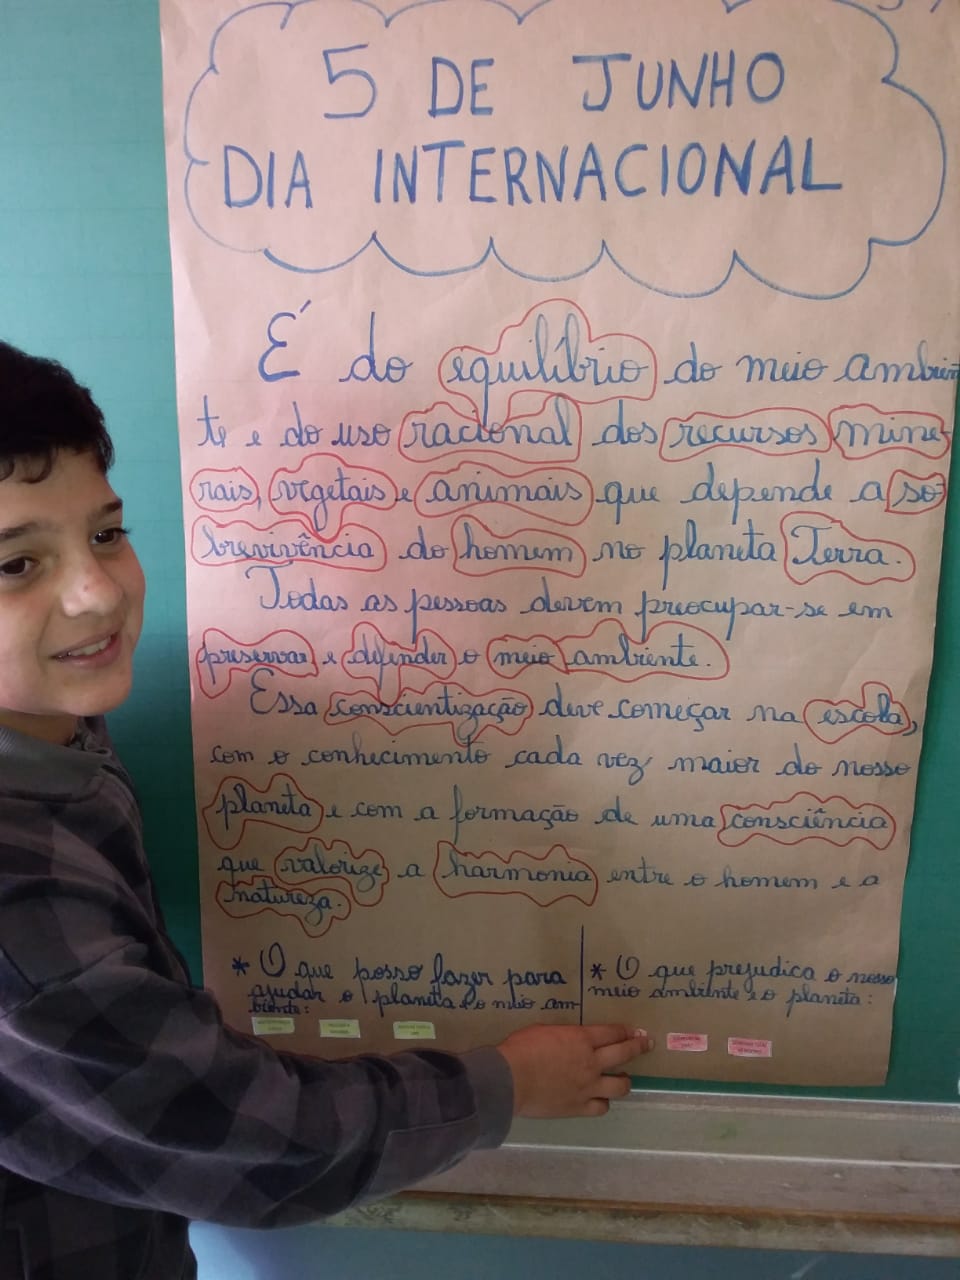 5 DE JUNHO
DIA INTERNACIONAL
É do equilíbrio do meio ambien
te e do uso racional dos recursos mine-
rais, vegetais e animais que depende a so
brevivência do homem no planeta Terra.
Todas as pessoas devem preocupar-se em
preservar e defender o meio ambiente.
Essa conscientização deve começar na escola,
com o conhecimento cada vez maior do nosso
planeta e com a formação de uma consciência
que valorize a harmonia entre o homem e a
natureza.
* O que posso fazer para
ajudar o planeta e o meio am-
biente:
* O que prejudica o nosso
meio ambiente e o planeta: